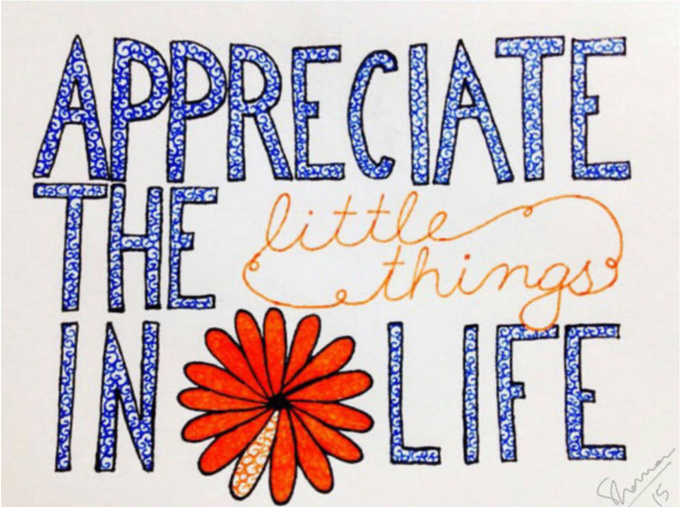 APPRECIATE
THE little
things
IN LIFE
15